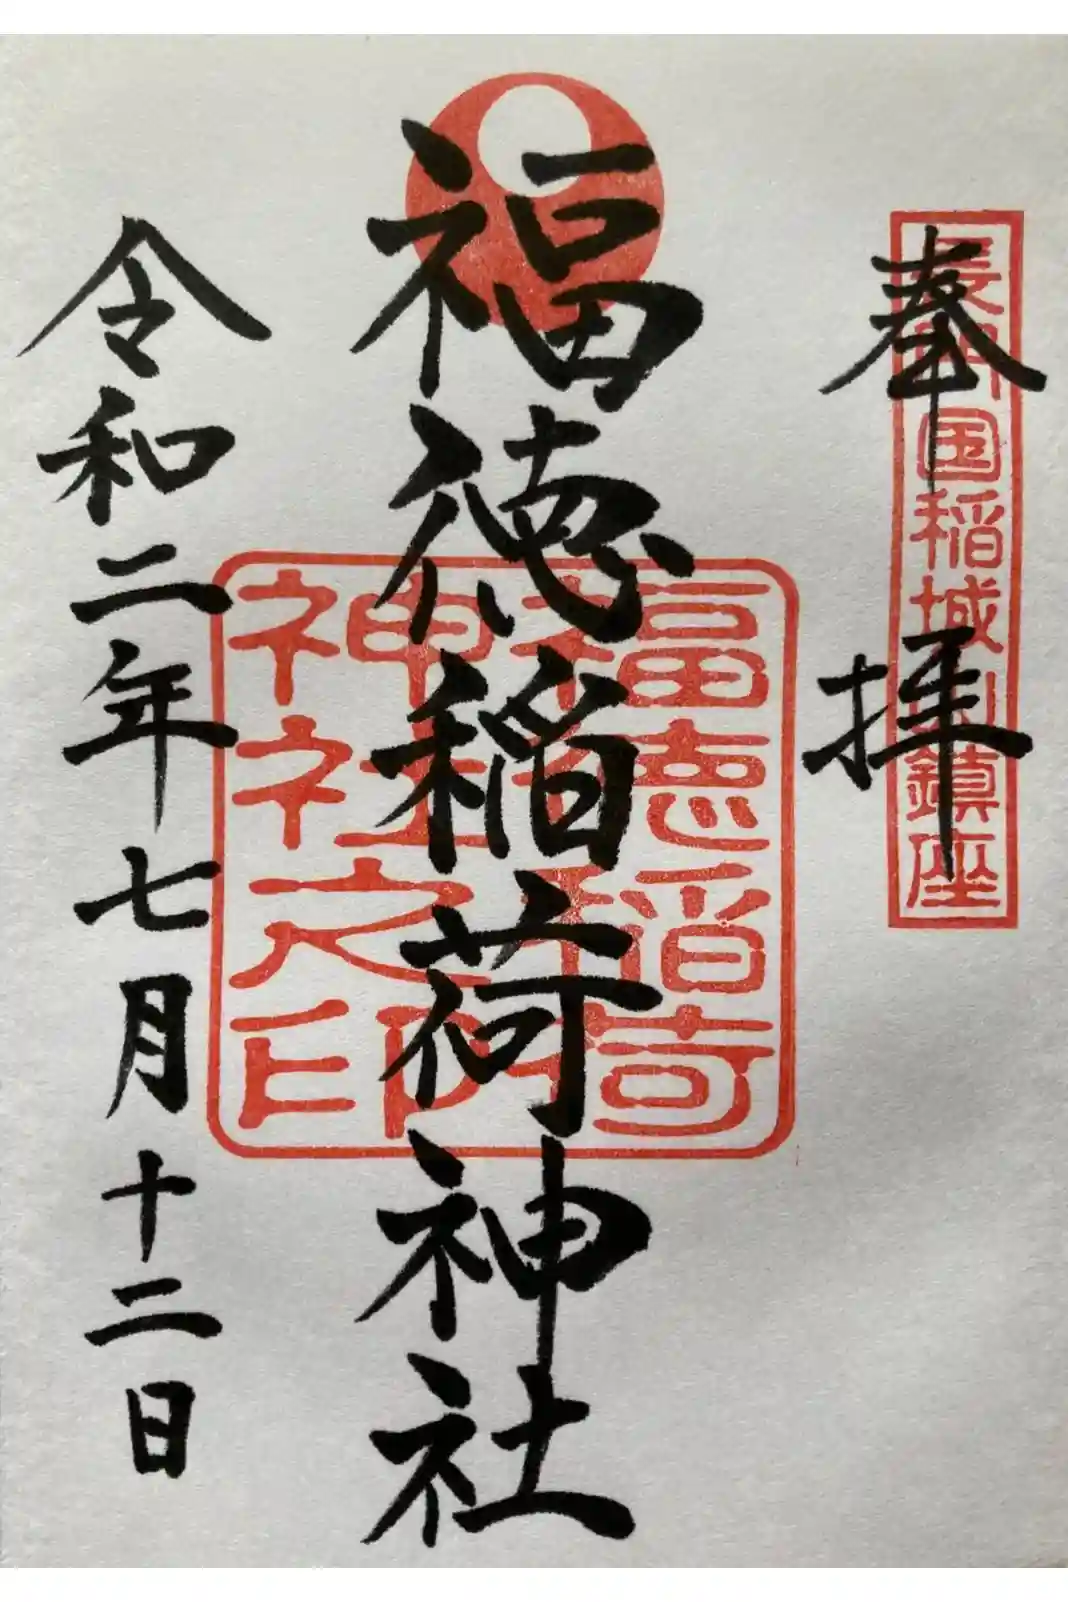 奉拝
長門国稲城山鎮座
福徳稲荷神社
福徳稲荷
神社之印
令和二年七月十二日